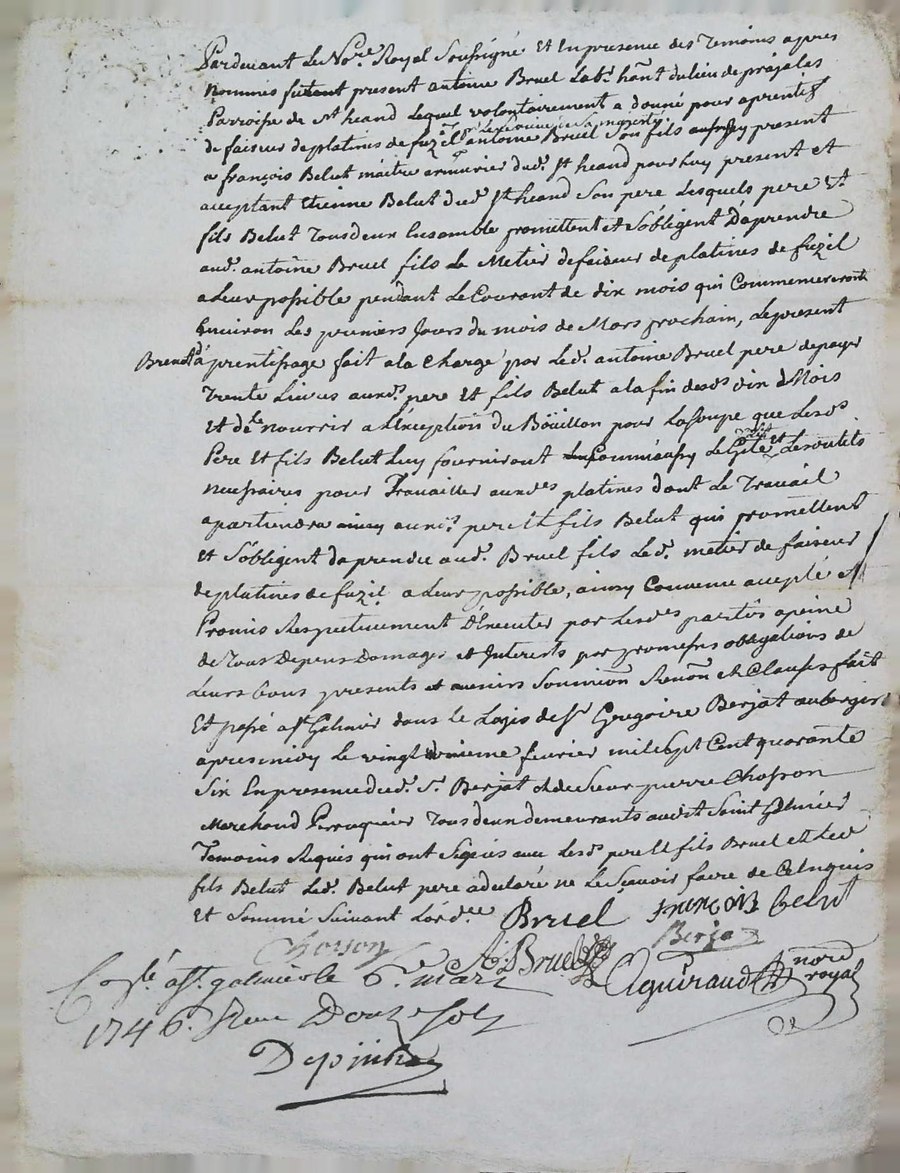 Pardevant Le No.re Royal Soussigné Et En presence des Temoins apres
nommés futent present antoine Bruel Lab.r ha͂nt du lieu de prajales
Parroisse de st heand Lequel volontairement a donné pour aprentif
pr le service de sa majesté
de faiseur de platines de fuzil antoine Bruel Son fils present
a françois Belut maitre armurier dud. St heand pour Luy present et
acceptant Etienne Belut dud. St heand Son pere Lesquels pere Et
fils Belut Tous deux Ensamble promettent et s'obligent D'aprendre
aud. antoine Bruel fils Le Metier de faiseur de platines de fuzil
a Leur possible pendant Le Courant de dix mois qui Commenceront
Environ Les premiers Jours du mois de Mars prochain, Le present
aprentissage fait a la Charge par Led. antoine Bruel pere de payer
Trente Livres auxd. pere Et fils Belut a la fin desd. dix Mois
Et de le nourrir a L'Exception du Boüillon pour La soupe que Lesd.
Pere Et fils Belut Luy fourniront Le Gite et Les outils
necessaires pour Travailler auxd. platines dont Le Travail
apartiendra aussy auxd. pere Et fils Belut qui promettent
et S'obligent d'aprendre aud. Bruel fils Led. metier de faiseur
de platines de fuzil a Leur possible, ainsy Convenu accepté et
Promis Respectivement D'Executer par Lesd. parties a peine
de Tous Depens Domages et Interets par promesses obligations de
Leurs biens presents et avenirs Soumi͂on Renõn et Clauses fait
Et passé a St Galmier dans le Logis de Sr Gregoire Berjat aubergiste
apres midy Le vingt fevrier mil sept Cent quarante
Six En presence dud. Sr. Berjat et de Sieur pierre Chosson
Marchand Perruquier Tous deux demeurants audit Saint Galmier
Temoins Requis qui ont Signés avec Lesd. pere Et fils Bruel et Led.
fils Belut Led. Belut pere a declaré ne Le Sçavoir faire de Ce Enquis
Et Sommé Suivant L'ord.ce Bruel francois belut
Chosson A. Bruel Berjat
Aguiraud nore royal
Con.lé a St. galmier le 6.e mars
1746. Reçu Douze sols